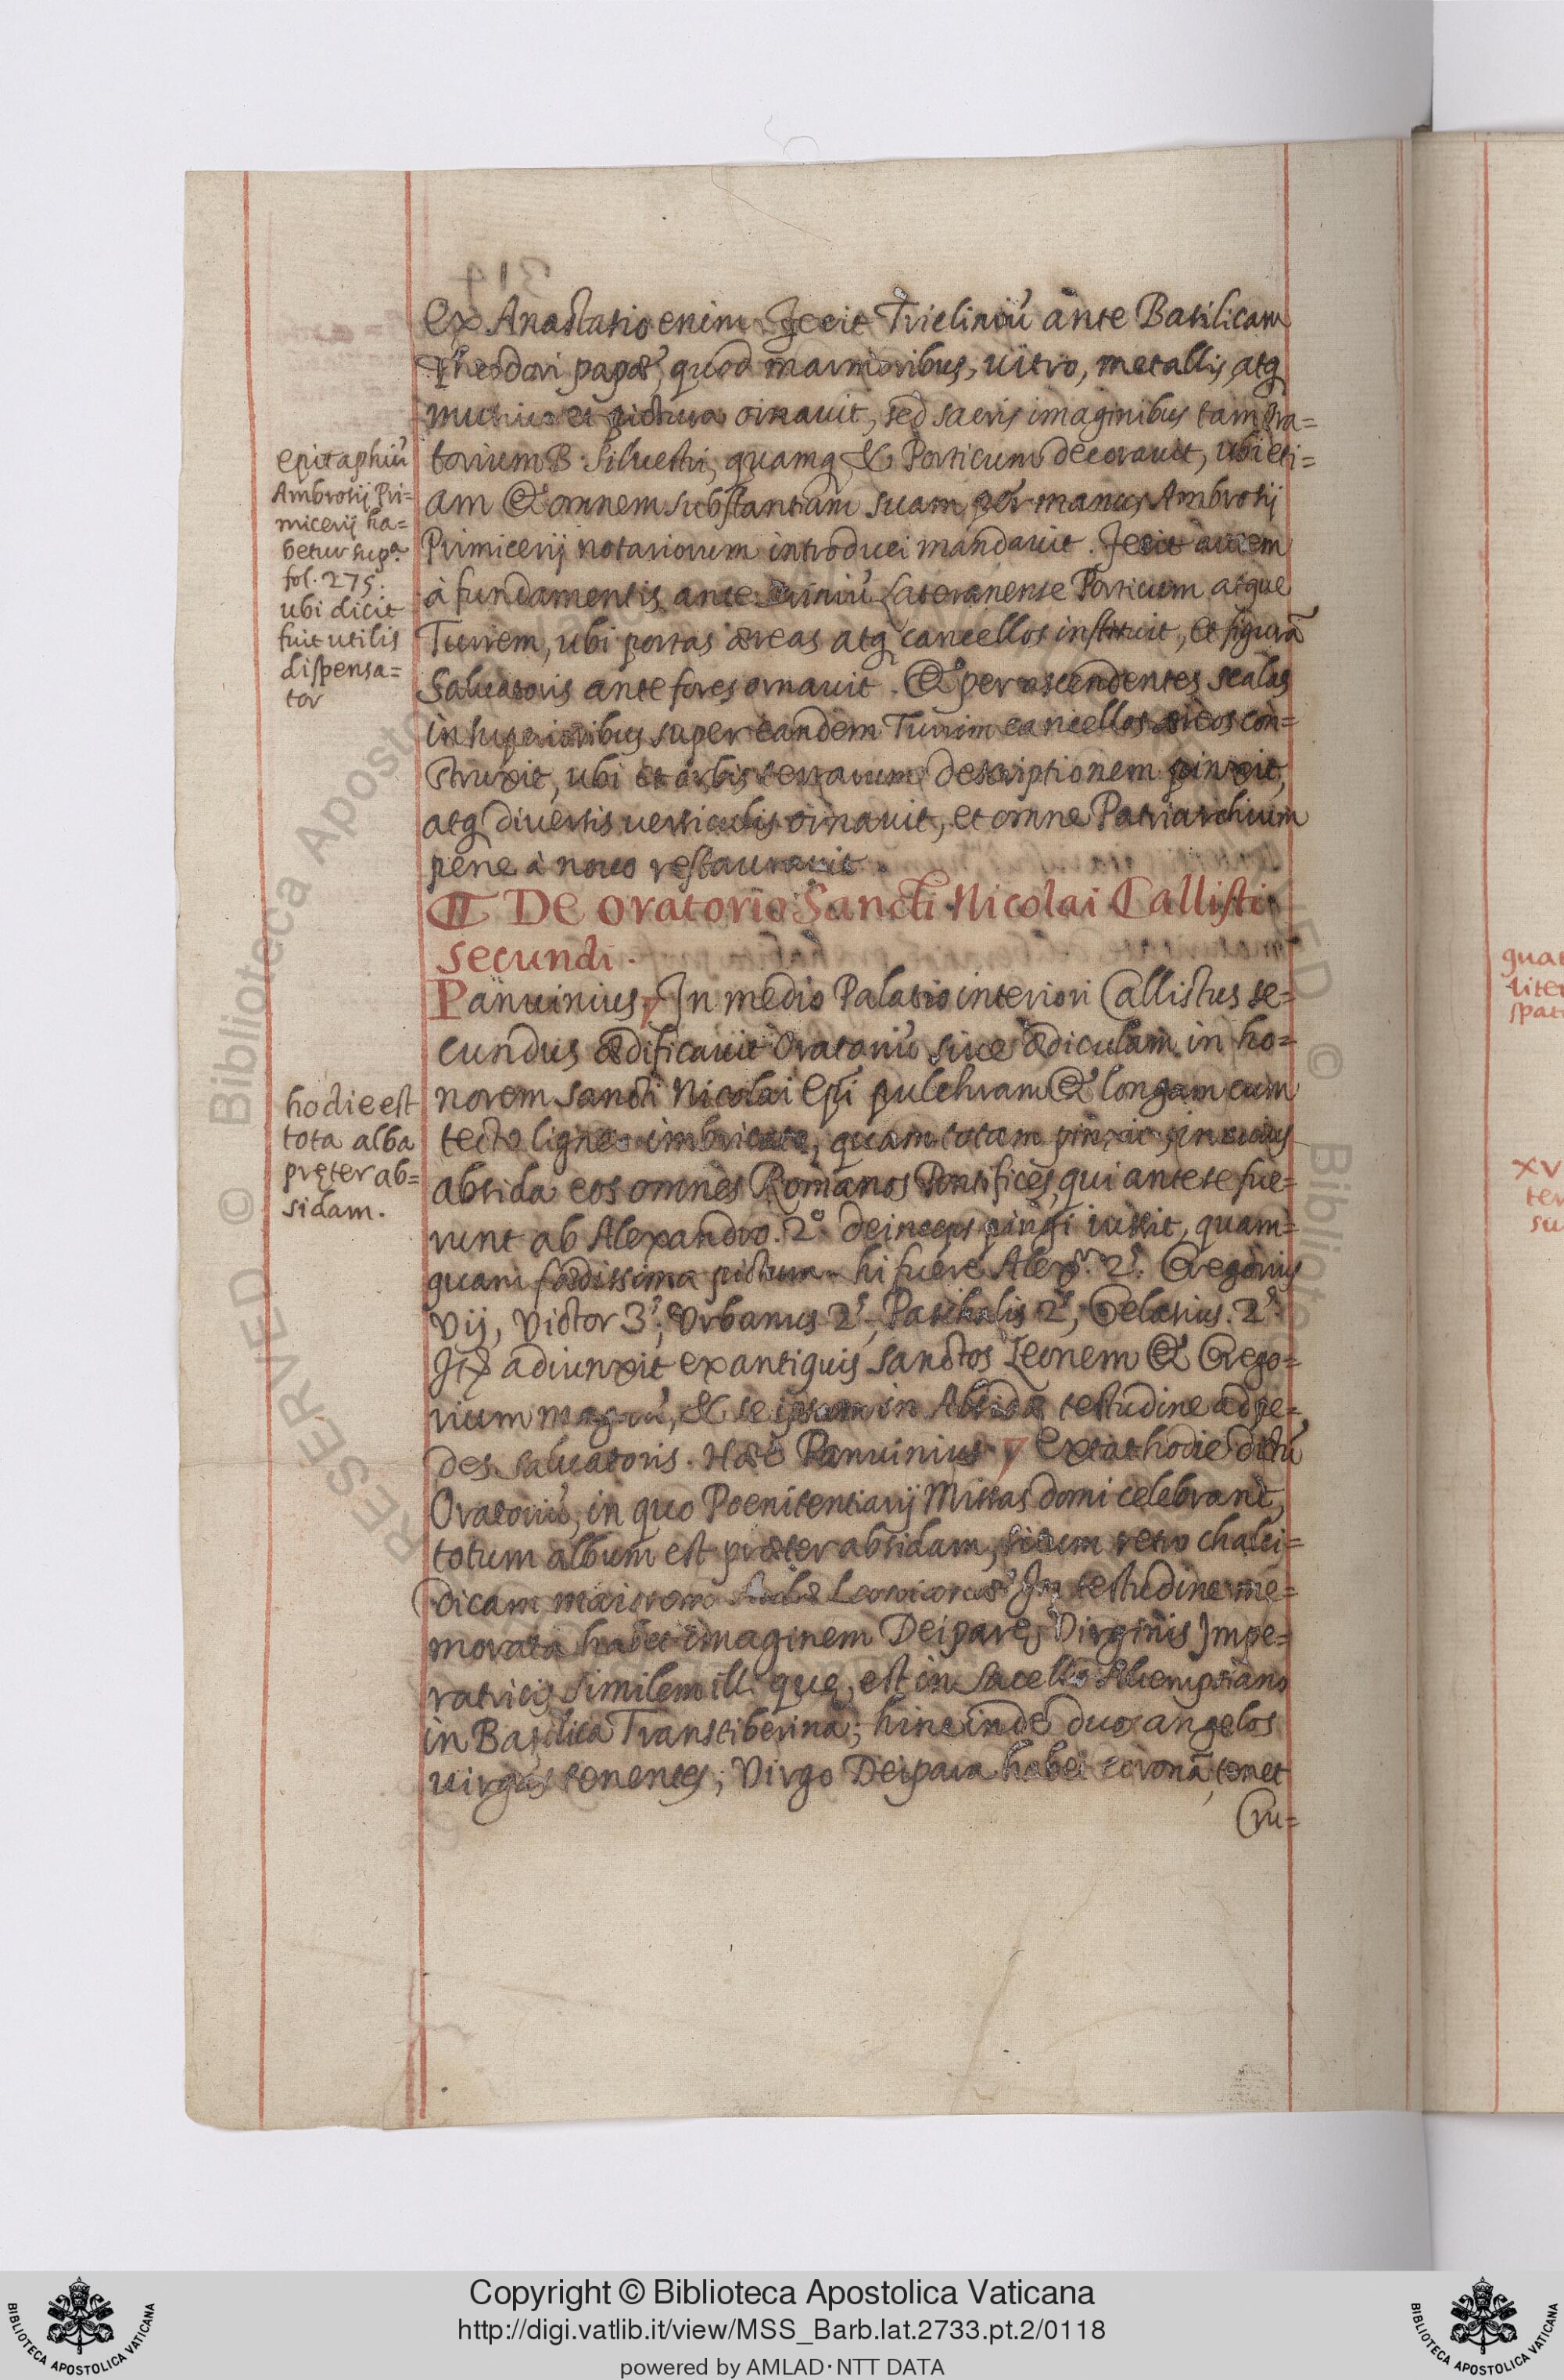 Ex Anastasio enim. Fecit Tricliniũ ante Basilicam
Theodori papæ, quod marmoribus, uitro, metallis, atq
musiuo et pictura ornauit, sed sacris imaginibus tam Ora=
torium B. Siluestri, quamq & Porticum decorauit, ubi eti=
am & omnem substantiam suam per manus Ambrosij
Primicerij notariorum introduci mandauit. Fecit autem
à fundamentis ante Lateranense Porticum atque
Turrem, ubi portas æreas atq cancellos instituit, et figurã
Saluatoris ante fores ornauit. & per ascendentes scalas
in superioribus super eandem Turrim cancellos æreos con=
struxit, ubi et orbis terrarum descriptionem pinxit,
atq diuersis uersiculis ornauit, et omne Patriarchium
pene à nouo restaurauit.
De oratorio Sancti Nicolai Callisti
secundi.
Panuinius, In medio Palatio interiori Callistus se=
cundus ædificauit Oratoriũ siue ædiculam in ho=
norem sancti Nicolai Epi pulchram & longam cum
tecto ligneo imbricato, quam totam pinxit, in cuius
absida eos omnes Romanos Pontifices, qui ante se fue=
runt ab Alexandro. 2º. deinceps pingi iussit, quam=
quam fœdissima pictura. hi fuere Alexr. 2s. Gregorius
Vij, Victor 3s, Vrbanus 2s, Paschalis 2s, Gelasius. 2s.
His adiunxit ex antiquis sanctos Leonem & Grego=
rium magnũ, & se ipsum in Absidæ testudine ad pe=
des saluatoris. Hæc Panuinius. Extat hodie dictũ
Oratoriũ, in quo Poenitentiarij Missas domi celebrant,
totum album est præter absidam, situm retro chalci=
dicam maiorem Aulæ Leonianæ In testudine me=
morata habet imaginem Deiparę Virginis Impe=
ratricis similem illi quę est in sacello Altempsiano
in Basilica Transtiberina; hinc inde duos angelos
uirgas tenentes; Virgo Deipara habet coronã, tenet
Cru=
epitaphiũ
Ambrosij Pri=
micerij ha=
betur supa
fol. 275.
ubi dicit
fuit utilis
dispensa=
tor
hodie est
tota alba
pręter ab=
sidam.
XV
su
RESERVED © Biblioteca Aposto
© Biblioteca
Copyright © Biblioteca Apostolica Vaticana
http://digi.vatlib.it/view/MSS_Barb.lat.2733.pt.2/0118
powered by AMLAD·NTT DATA
BIBLIOTECA APOSTOLICA VATICANA
BIBLIOTECA APOSTOLICA VATICANA